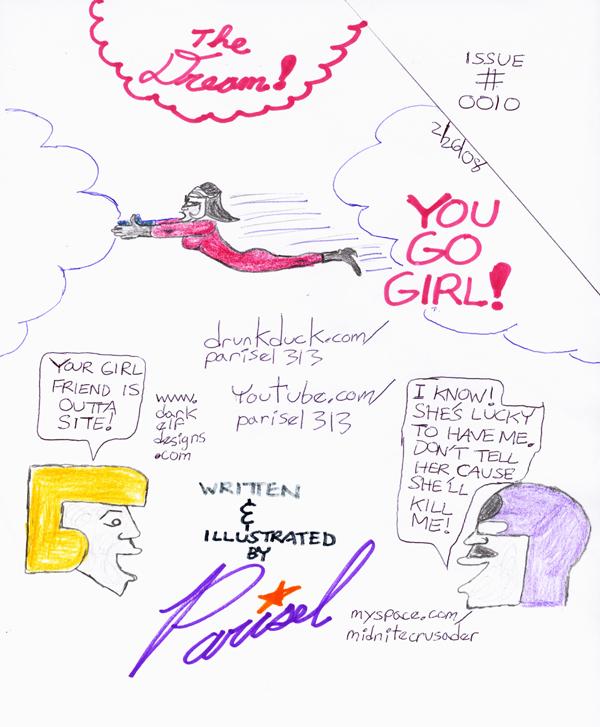 The
Dream!
ISSUE
#
0010
2/26/08
YOU
GO
GIRL!
drunkduck.com/
parisel313
YOUR GIRL
FRIEND IS
OUTTA
SITE!
www.
dark
elf
designs
.com
Youtube.com/
parisel313
I KNOW!
SHE'S LUCKY
TO HAVE ME.
DON'T TELL
HER CAUSE
SHE'LL
KILL
ME!
WRITTEN
&
ILLUSTRATED
BY
Parisel
myspace.com/
midnitecrusader